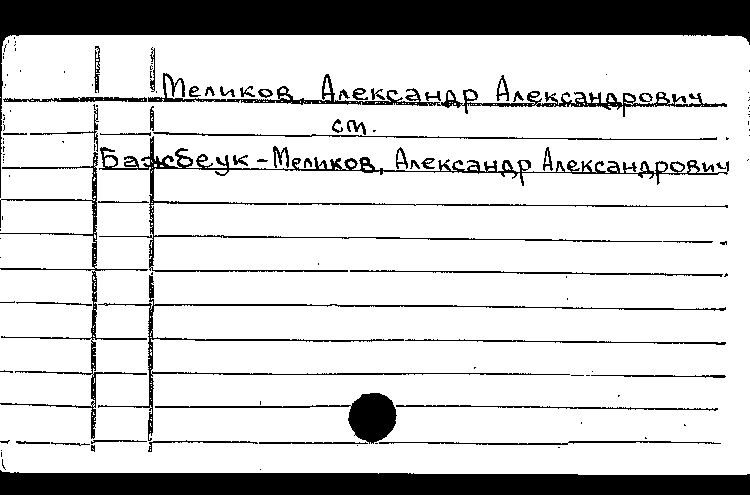 Меликов, Александр Александрович
ст.
Бажбеук-Меликов, Александр Александрович